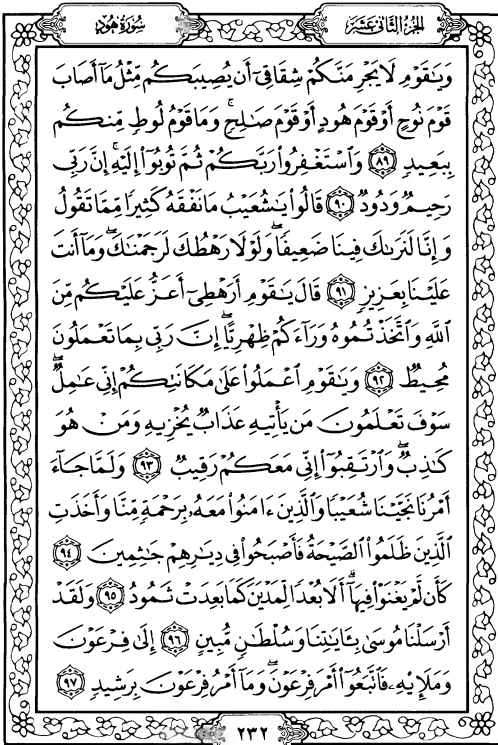 سُورَةُ هُودٍ
الجُزْءُ الثَّانِي عَشَرَ
وَيَٰقَوْمِ لَا يَجْرِمَنَّكُمْ شِقَاقِىٓ أَن يُصِيبَكُم مِّثْلُ مَآ أَصَابَ
قَوْمَ نُوحٍ أَوْ قَوْمَ هُودٍ أَوْ قَوْمَ صَٰلِحٍۚ وَمَا قَوْمُ لُوطٍ مِّنكُم
بِبَعِيدٍ ٨٩ وَٱسْتَغْفِرُوا۟ رَبَّكُمْ ثُمَّ تُوبُوٓا۟ إِلَيْهِۚ إِنَّ رَبِّى
رَحِيمٌ وَدُودٌ ٩٠ قَالُوا۟ يَٰشُعَيْبُ مَا نَفْقَهُ كَثِيرًا مِّمَّا تَقُولُ
وَإِنَّا لَنَرَىٰكَ فِينَا ضَعِيفًاۖ وَلَوْلَا رَهْطُكَ لَرَجَمْنَٰكَۖ وَمَآ أَنتَ
عَلَيْنَا بِعَزِيزٍ ٩١ قَالَ يَٰقَوْمِ أَرَهْطِىٓ أَعَزُّ عَلَيْكُم مِّنَ
ٱللَّهِ وَٱتَّخَذْتُمُوهُ وَرَآءَكُمْ ظِهْرِيًّاۖ إِنَّ رَبِّى بِمَا تَعْمَلُونَ
مُحِيطٌ ٩٢ وَيَٰقَوْمِ ٱعْمَلُوا۟ عَلَىٰ مَكَانَتِكُمْ إِنِّى عَٰمِلٌۖ
سَوْفَ تَعْلَمُونَ مَن يَأْتِيهِ عَذَابٌ يُخْزِيهِ وَمَنْ هُوَ
كَٰذِبٌۖ وَٱرْتَقِبُوٓا۟ إِنِّى مَعَكُمْ رَقِيبٌ ٩٣ وَلَمَّا جَآءَ
أَمْرُنَا نَجَّيْنَا شُعَيْبًا وَٱلَّذِينَ ءَامَنُوا۟ مَعَهُۥ بِرَحْمَةٍ مِّنَّا وَأَخَذَتِ
ٱلَّذِينَ ظَلَمُوا۟ ٱلصَّيْحَةُ فَأَصْبَحُوا۟ فِى دِيَٰرِهِمْ جَٰثِمِينَ ٩٤
كَأَن لَّمْ يَغْنَوْا۟ فِيهَآۗ أَلَا بُعْدًا لِّمَدْيَنَ كَمَا بَعِدَتْ ثَمُودُ ٩٥ وَلَقَدْ
أَرْسَلْنَا مُوسَىٰ بِـَٔايَٰتِنَا وَسُلْطَٰنٍ مُّبِينٍ ٩٦ إِلَىٰ فِرْعَوْنَ
وَمَلَإِي۟هِۦ فَٱتَّبَعُوٓا۟ أَمْرَ فِرْعَوْنَۖ وَمَآ أَمْرُ فِرْعَوْنَ بِرَشِيدٍ ٩٧
٢٣٢